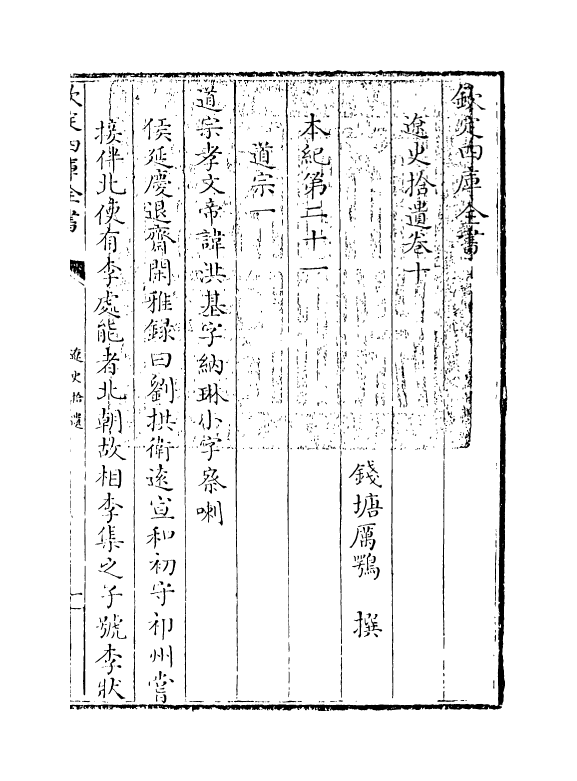 欽定四庫全書
遼史拾遺卷十
錢塘厲鶚 撰
本紀第二十一
道宗一
道宗孝文帝諱洪基字納琳小字察喇
侯延慶退齋閒雅録曰劉拱衛逺宣和初守祁州嘗
接伴北使有李處能者北朝故相李集之子號李狀
欽定四庫全書
遼史拾遺
一